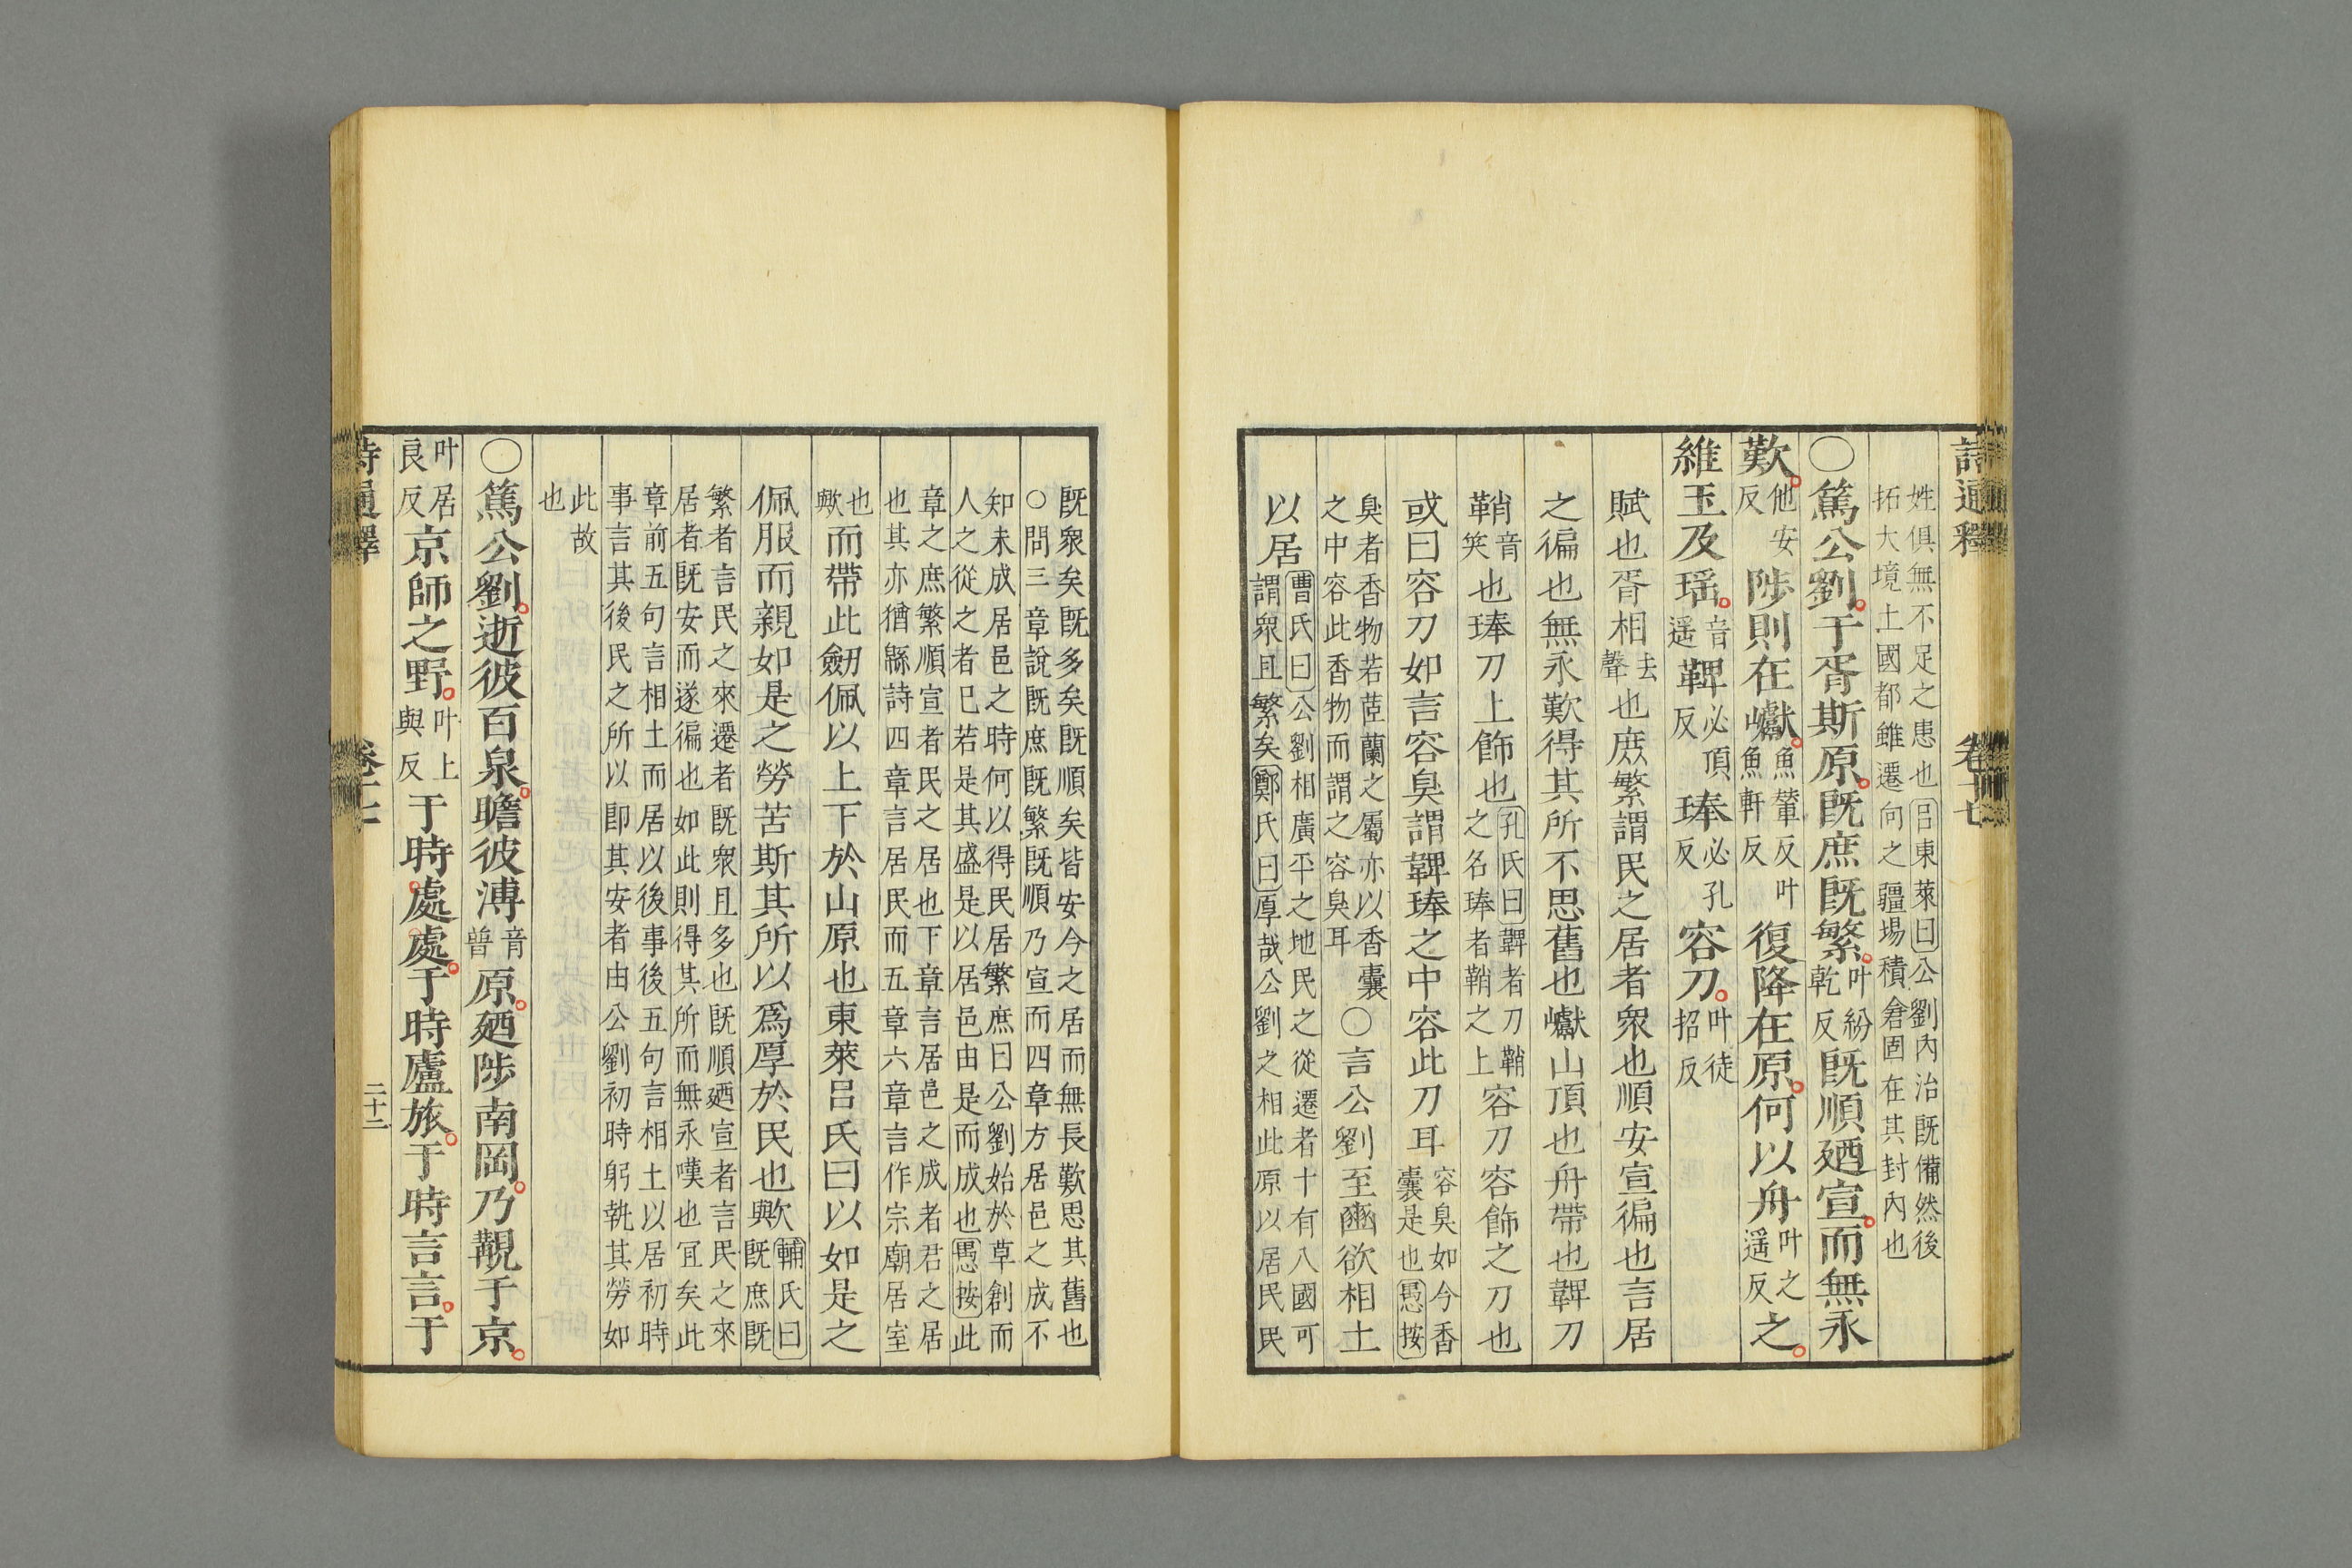 詩通釋 卷十七
姓俱無不足之患也呂東萊曰公劉內治既備然後
拓大境土國都雖遷向之疆埸積倉固在其封內也
○篤公劉于胥斯原既庶既繁叶紛乾反既順廼宣而無永
歎他安反陟則在巘魚輦反叶魚軒反復降在原何以舟叶之遥反之
維玉及瑶音遥鞞必頂反琫必孔反容刀叶徒招反
賦也胥相去聲也庶繁謂民之居者衆也順安宣徧也言居
之徧也無永歎得其所不思舊也巘山頂也舟帶也鞞刀
鞘音笑也琫刀上飾也孔氏曰鞞者刀鞘之名琫者鞘之上容刀容飾之刀也
或曰容刀如言容臭謂鞞琫之中容此刀耳容臭如今香囊是也愚按
臭者香物若茝蘭之屬亦以香囊之中容此香物而謂之容臭耳○言公劉至豳欲相土
以居曹氏曰公劉相廣平之地民之從遷者十有八國可謂衆且繁矣鄭氏曰厚哉公劉之相此原以居民民
既衆矣既多矣既順矣皆安今之居而無長歎思其舊也
○問三章說既庶既繁既順乃宣而四章方居邑之成不
知未成居邑之時何以得民居繁庶曰公劉始於草創而
人之從之者已若是其盛是以居邑由是而成也愚按此
章之庶繁順宣者民之居也下章言居邑之成者君之居
也其亦猶緜詩四章言居民而五章六章言作宗廟居室
也歟而帶此劒佩以上下於山原也東萊呂氏曰以如是之
佩服而親如是之勞苦斯其所以爲厚於民也歟輔氏曰既庶既
繁者言民之來遷者既衆且多也既順廼宣者言民之來
居者既安而遂徧也如此則得其所而無永嘆也宜矣此
章前五句言相土而居以後事後五句言相土以居初時
事言其後民之所以即其安者由公劉初時躬執其勞如
此故也
○篤公劉逝彼百泉瞻彼溥音普原廼陟南岡乃覯于京
叶居良反京師之野叶上與反于時處處于時廬旅于時言言于
詩通釋 卷十七 二十二